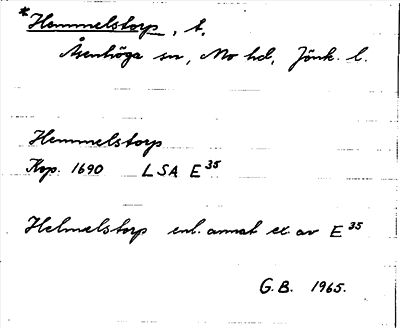 *Hemmelstorp, t.
Åsenhöga sn, Mo hd, Jönk. l.
Hemmelstorp
Kop. 1690 LSA E³⁵
Helmelstorp enl. annat ex. av E³⁵
G.B. 1965.